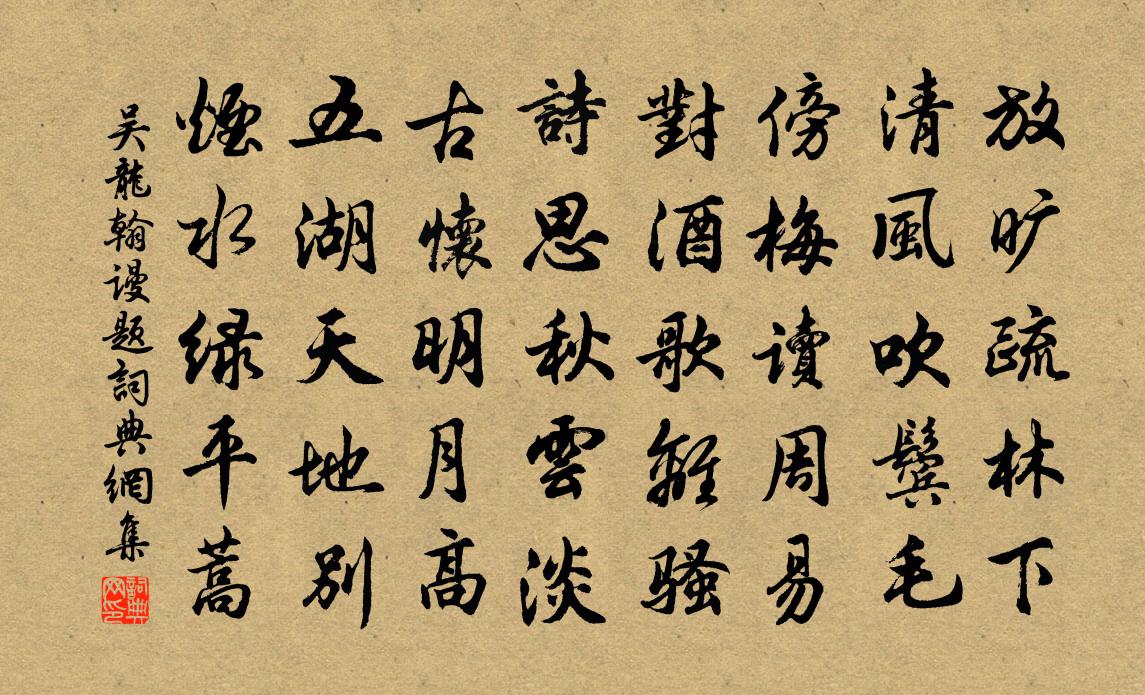 放旷疏林下
清風吹鬓毛
傍梅讀周易
對酒歌離騷
詩思秋雲淡
古懷明月高
五湖天地別
煙水绿平蒿
吴龍翰谩题詞典網集
詞典网印